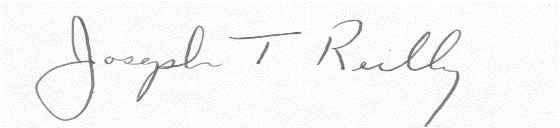 Joseph T Reilly